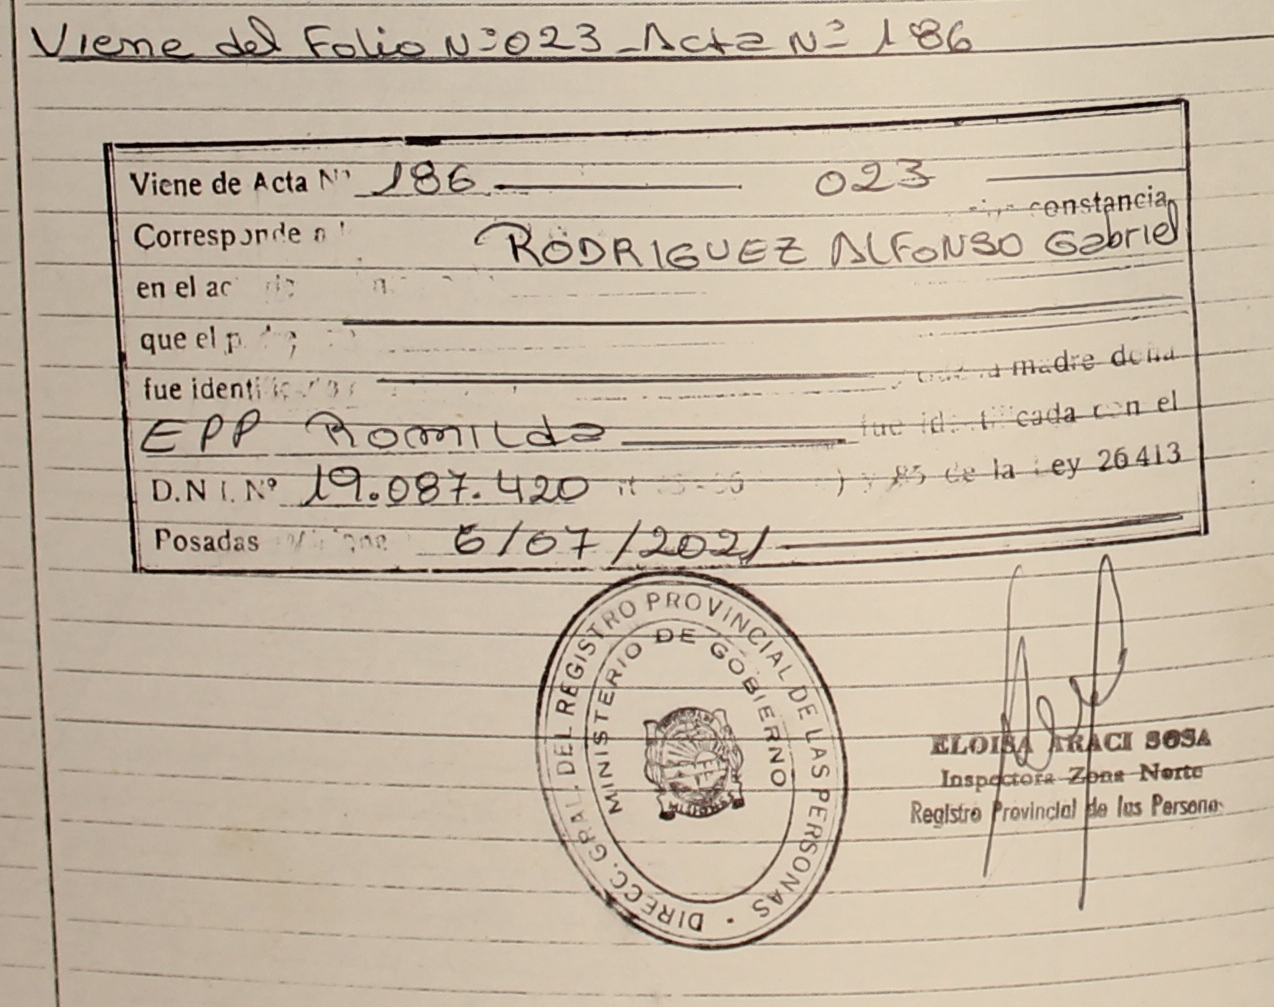 Viene del Folio N° 023 - Acta N° 186
Viene de Acta N° 186 023
constancia
Corresponde a RODRIGUEZ ALFONSO Gabriel
en el
que el
fue y que la madre doña
EPP Romilda fue identificada con el
D.N.I. Nº 19.087.420 y 85 de la Ley 26413
Posadas 6/07/2021
DIRECC. GRAL. DEL REGISTRO PROVINCIAL DE LAS PERSONAS
MINISTERIO DE GOBIERNO
MISIONES
ELOISA IRACI SOSA
Inspectora Zona Norte
Registro Provincial de las Personas